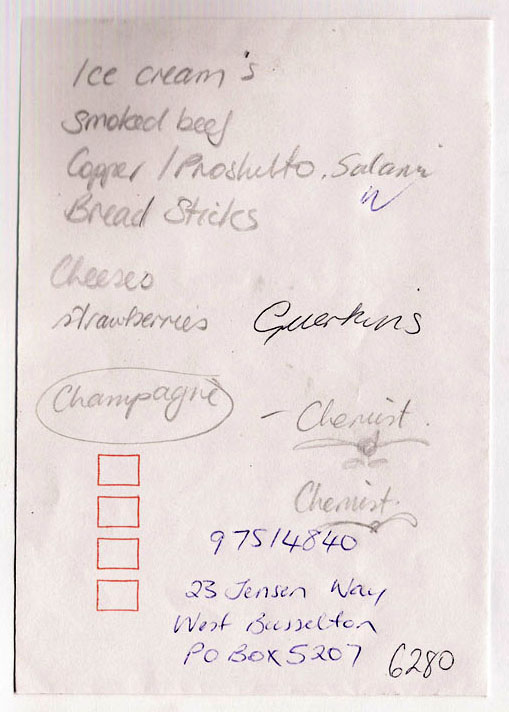 Ice cream's
smoked beef
Copper / Proshutto. Salami
Bread Sticks
Cheeses
strawberries Guerkins
Champagne - Chemist.
Chemist.
97514840
23 Jensen Way
West Busselton
PO BOX 5207 6280